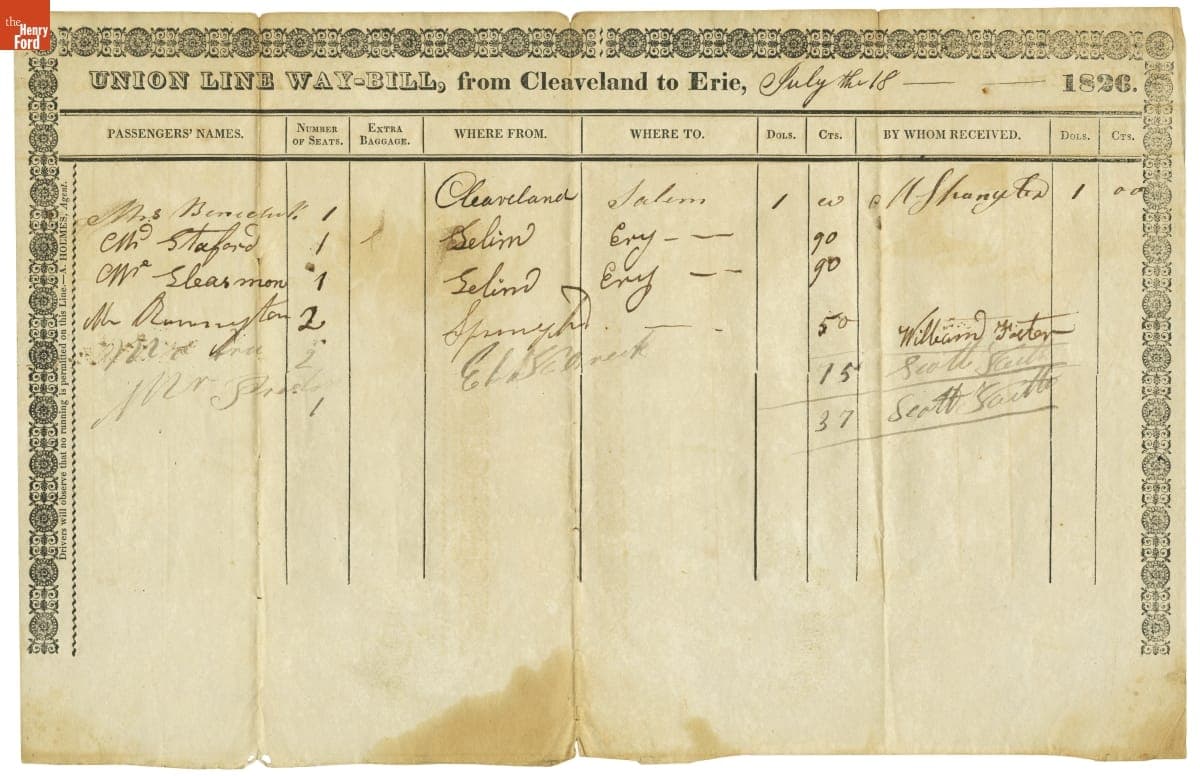 the Henry Ford
UNION LINE WAY-BILL, from Cleaveland to Erie, July the 18 1826.
PASSENGERS' NAMES. NUMBER OF SEATS. EXTRA BAGGAGE. WHERE FROM. WHERE TO. DOLS. CTS. BY WHOM RECEIVED. DOLS. CTS.
Mrs 1 Cleaveland Salem 1 00 1 00
Mr Staford 1 Selim Ery 90
Mr Gleasmon 1 Selind Ery 90
Mr 2 50 William Foster
2 15 Scott
Mr 1 37 Scott
Drivers will observe that no running is permitted on this Line.—A. HOLMES, Agent.